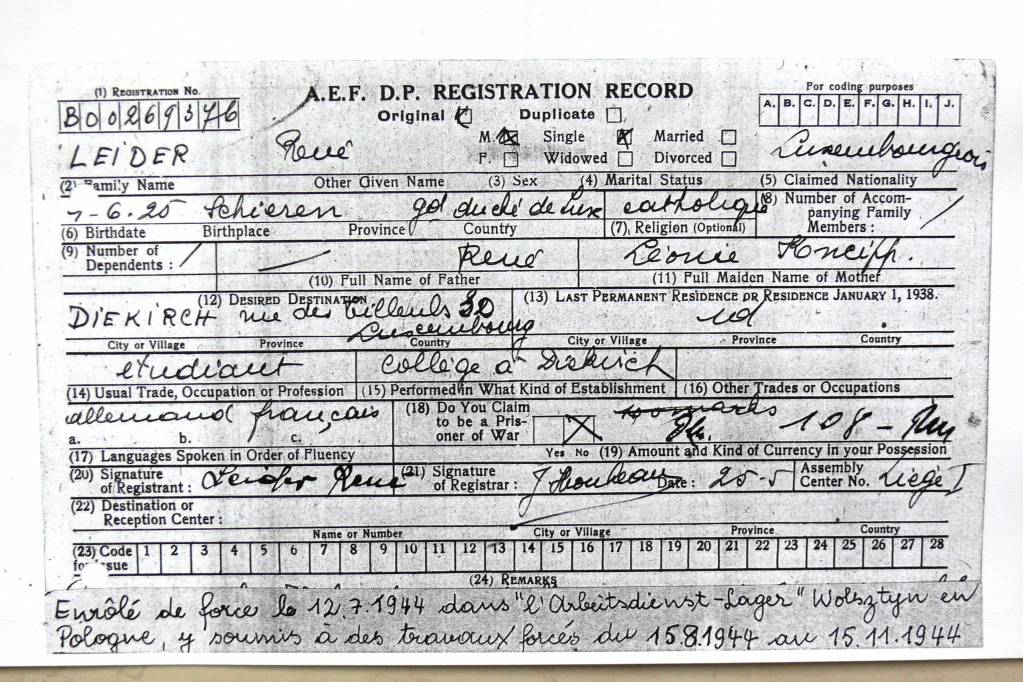 (1) REGISTRATION No.
A.E.F. D.P. REGISTRATION RECORD
For coding purposes
B00269376
Original Duplicate
A. B. C. D. E. F. G. H. I. J.
M. Single Married
LEIDER René Luxembourgeois
F. Widowed Divorced
(2) Family Name Other Given Name (3) Sex (4) Marital Status (5) Claimed Nationality
7-6.25 Schieren gd duché de Lux catholique (8) Number of Accom-
panying Family
Members : /
(6) Birthdate Birthplace Province Country (7), Religion (Optional)
(9) Number of
Dependents : / — René Léonie Kneipp.
(10) Full Name of Father (11) Full Maiden Name of Mother
(12) DESIRED DESTINATION (13) LAST PERMANENT RESIDENCE OR RESIDENCE JANUARY 1, 1938.
DIEKIRCH rue des Tilleuls 30 id
Luxembourg
City or Village Province Country City or Village Province Country
etudiant collège à Diekirch
(14) Usual Trade, Occupation or Profession (15) Performed in What Kind of Establishment (16) Other Trades or Occupations
allemand français (18) Do You Claim
to be a Pris-
oner of War 108 -
a. b. c.
(17) Languages Spoken in Order of Fluency Yes No (19) Amount and Kind of Currency in your Possession
(20) Signature
of Registrant : Leider René (21) Signature
of Registrar : Date : 25-5 Assembly
Center No. Liège I
(22) Destination or
Reception Center :
Name or Number City or Village Province Country
(23) Code
for Issue 1 2 3 4 5 6 7 8 9 10 11 12 13 14 15 16 17 18 19 20 21 22 23 24 25 26 27 28
(24) REMARKS
Enrôlé de force le 12.7.1944 dans "l'Arbeitsdienst-Lager" Wolsztyn en
Pologne, y soumis à des travaux forcés du 15.8.1944 au 15.11.1944